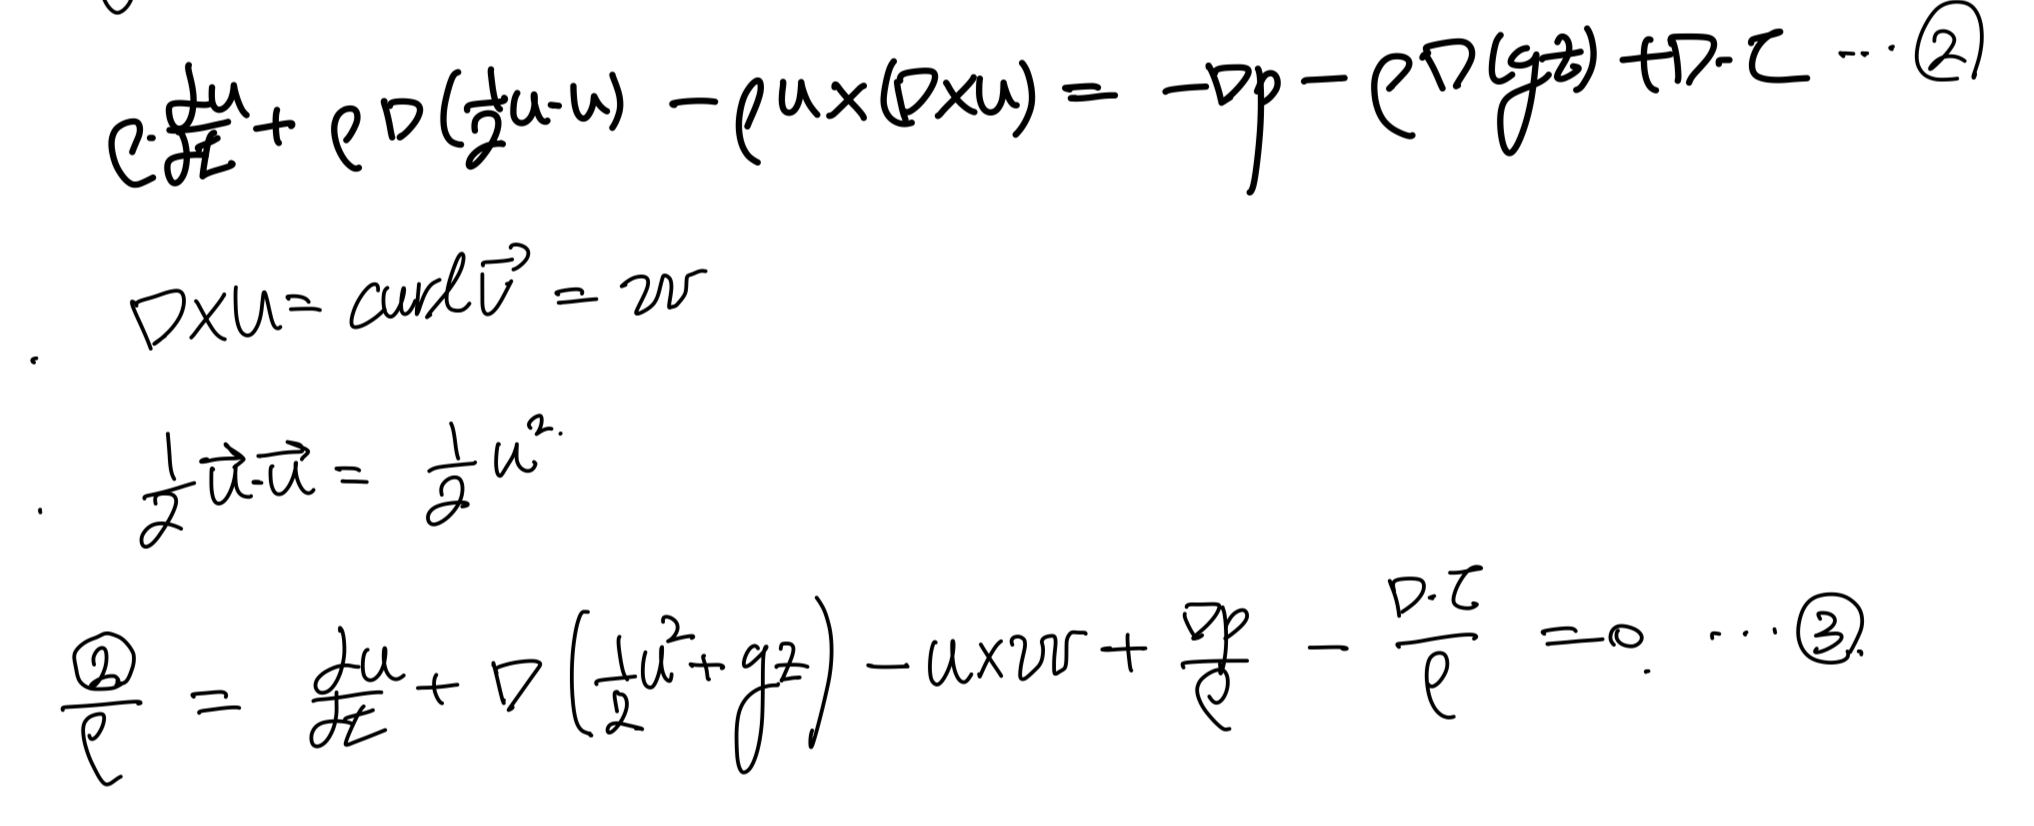 ρ·∂u/∂t + ρ∇(½u·u) − ρu×(∇×u) = −∇p − ρ∇(gz) + ∇·τ ··· ②
∇×u = curl V⃗ = 2w
½ u⃗·u⃗ = ½u².
②/ρ = ∂u/∂t + ∇(½u² + gz) − u×2w + ∇p/ρ − ∇·τ/ρ = 0. ··· ③